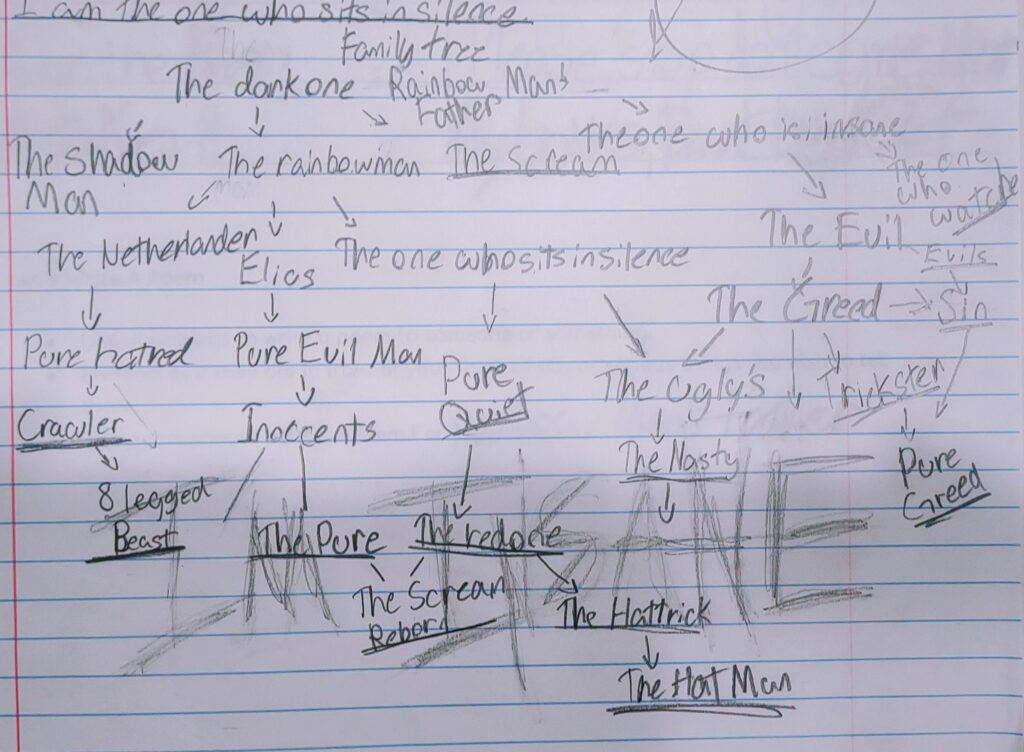 I am the one who sits in silence.
Family tree
The dark one Rainbow Man's
Father
The one who is insane
The Shadow
Man
The rainbowman
The Scream
The one
who
watche
The Evil
Evils
The Netherlander
Elias
The one who sits in silence
The Greed
Sin
Pure hatred
Pure Evil Man
Pure
Quiet
The Ugly's
Trickster
Crawler
Inoccents
The Nasty
Pure
Greed
8 legged
Beast
The Pure
The redone
The Screan
Rebord
The Hattrick
The Hat Man